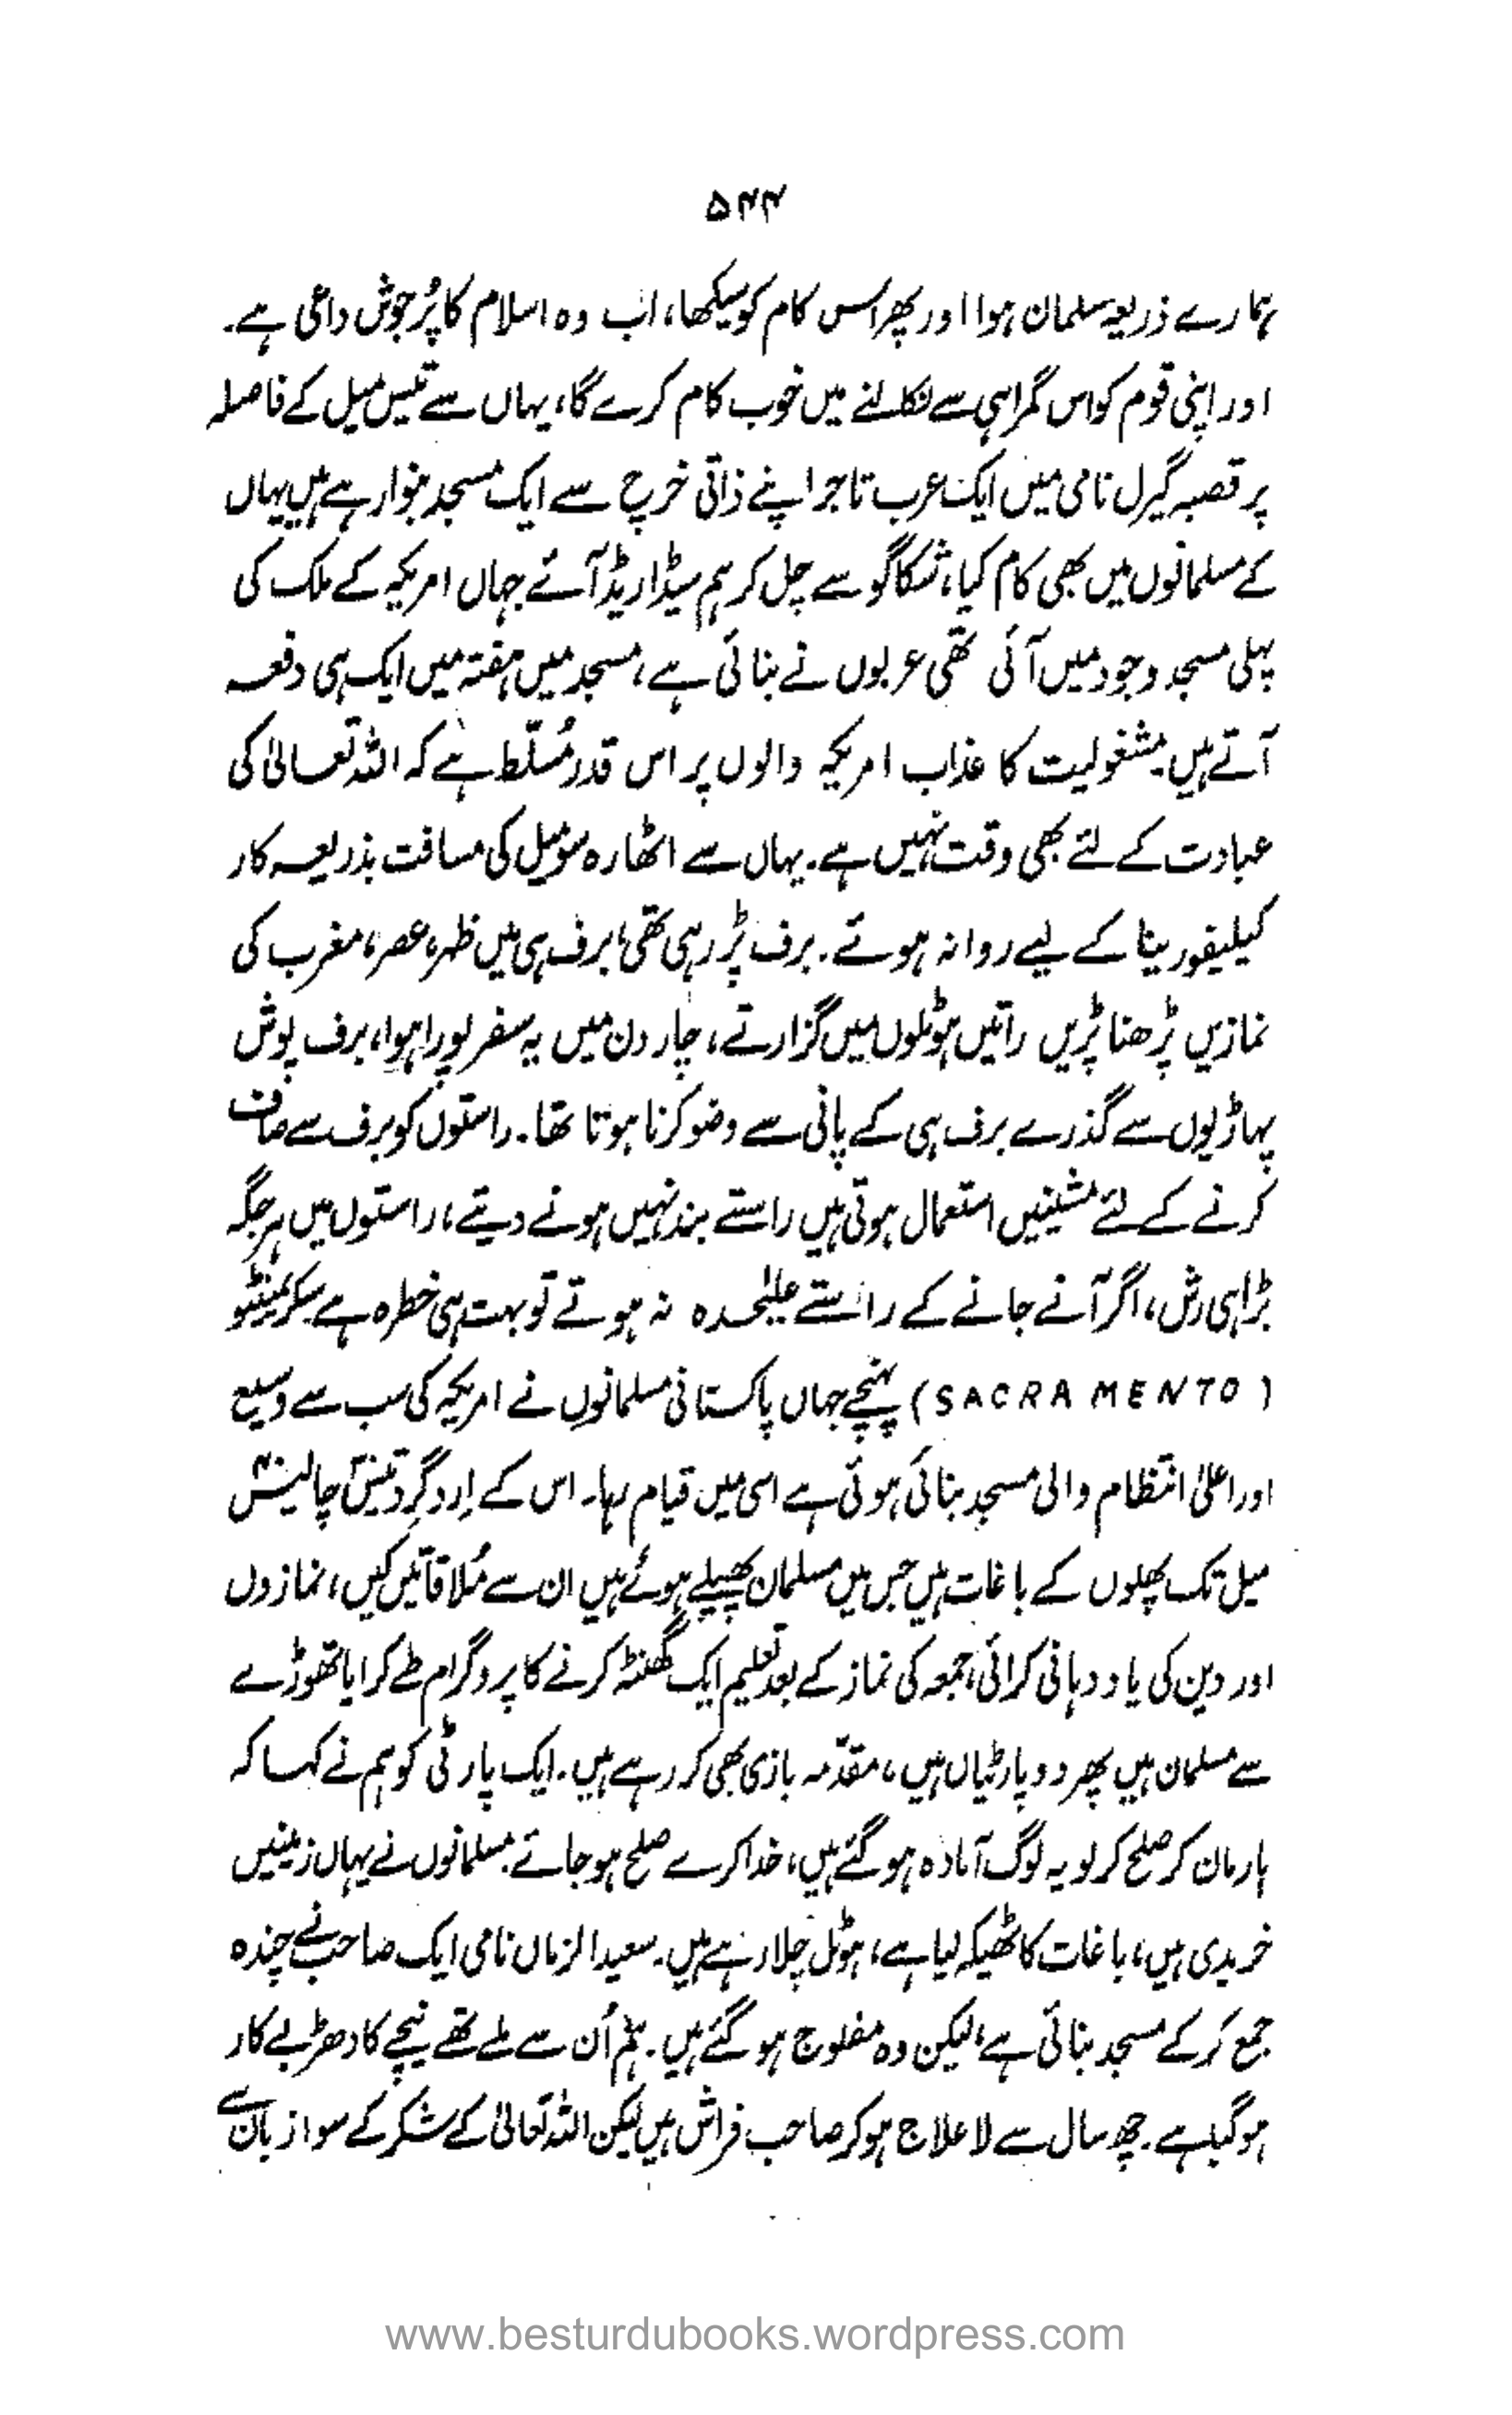 ۵۴۴
ہمارے ذریعہ مسلمان ہوا اور پھر اس کام کو سیکھا، اب وہ اسلام کا پُرجوش داعی ہے۔
اور اپنی قوم کو اس گمراہی سے نکالنے میں خوب کام کرے گا، یہاں سے تیس میل کے فاصلہ
پر قصبہ گیرل نامی میں ایک عرب تاجر اپنے ذاتی خرچ سے ایک مسجد بنوا رہے ہیں یہاں
کے مسلمانوں میں بھی کام کیا، شکاگو سے چل کر ہم سیڈار ریڈ آئے جہاں امریکہ کے ملک کی
پہلی مسجد وجود میں آئی تھی عربوں نے بنائی ہے، مسجد میں ہفتہ میں ایک ہی دفعہ
آتے ہیں۔ مشغولیت کا عذاب امریکہ والوں پر اس قدر مُسلّط ہے کہ اللہ تعالیٰ کی
عبادت کے لئے بھی وقت نہیں ہے۔ یہاں سے اٹھارہ سو میل کی مسافت بذریعہ کار
کیلیفورینا کے لیے روانہ ہوئے۔ برف پڑ رہی تھی، برف ہی میں ظہر، عصر، مغرب کی
نمازیں پڑھنا پڑیں راتیں ہوٹلوں میں گزارتے، چار دن میں یہ سفر پورا ہوا، برف پوش
پہاڑیوں سے گذرے برف ہی کے پانی سے وضو کرنا ہوتا تھا۔ راستوں کو برف سے صاف
کرنے کے لئے مشینیں استعمال ہوتی ہیں راستے بند نہیں ہونے دیتے، راستوں میں ہر جگہ
بڑا ہی رش، اگر آنے جانے کے راستے علیٰحدہ نہ ہوتے تو بہت ہی خطرہ ہے سکریمینٹو
(SACRAMENTO) پہنچے جہاں پاکستانی مسلمانوں نے امریکہ کی سب سے وسیع
اور اعلیٰ انتظام والی مسجد بنائی ہوئی ہے اسی میں قیام رہا۔ اس کے اِرد گِرد تیس چالیس
میل تک پھلوں کے باغات ہیں جس میں مسلمان پھیلے ہوئے ہیں ان سے مُلاقاتیں کیں، نمازوں
اور دین کی یاد دہانی کرائی، جمعہ کی نماز کے بعد تعلیم ایک گھنٹہ کرنے کا پروگرام طے کرایا تھوڑے
سے مسلمان ہیں پھر دو پارٹیاں ہیں، مقدّمہ بازی بھی کر رہے ہیں۔ ایک پارٹی کو ہم نے کہا کہ
ہار مان کر صلح کر لو یہ لوگ آمادہ ہو گئے ہیں، خدا کرے صلح ہو جائے۔ مسلمانوں نے یہاں زمینیں
خریدی ہیں، باغات کا ٹھیکہ لیا ہے، ہوٹل چلا رہے ہیں۔ سعید الزماں نامی ایک صاحب نے چندہ
جمع کر کے مسجد بنائی ہے، لیکن وہ مفلوج ہو گئے ہیں۔ ہم اُن سے ملے تھے نیچے کا دھڑ بے کار
ہو گیا ہے۔ چھ سال سے لا علاج ہو کر صاحب فراش ہیں لیکن اللہ تعالیٰ کے شکر کے سوا زبان سے
www.besturdubooks.wordpress.com